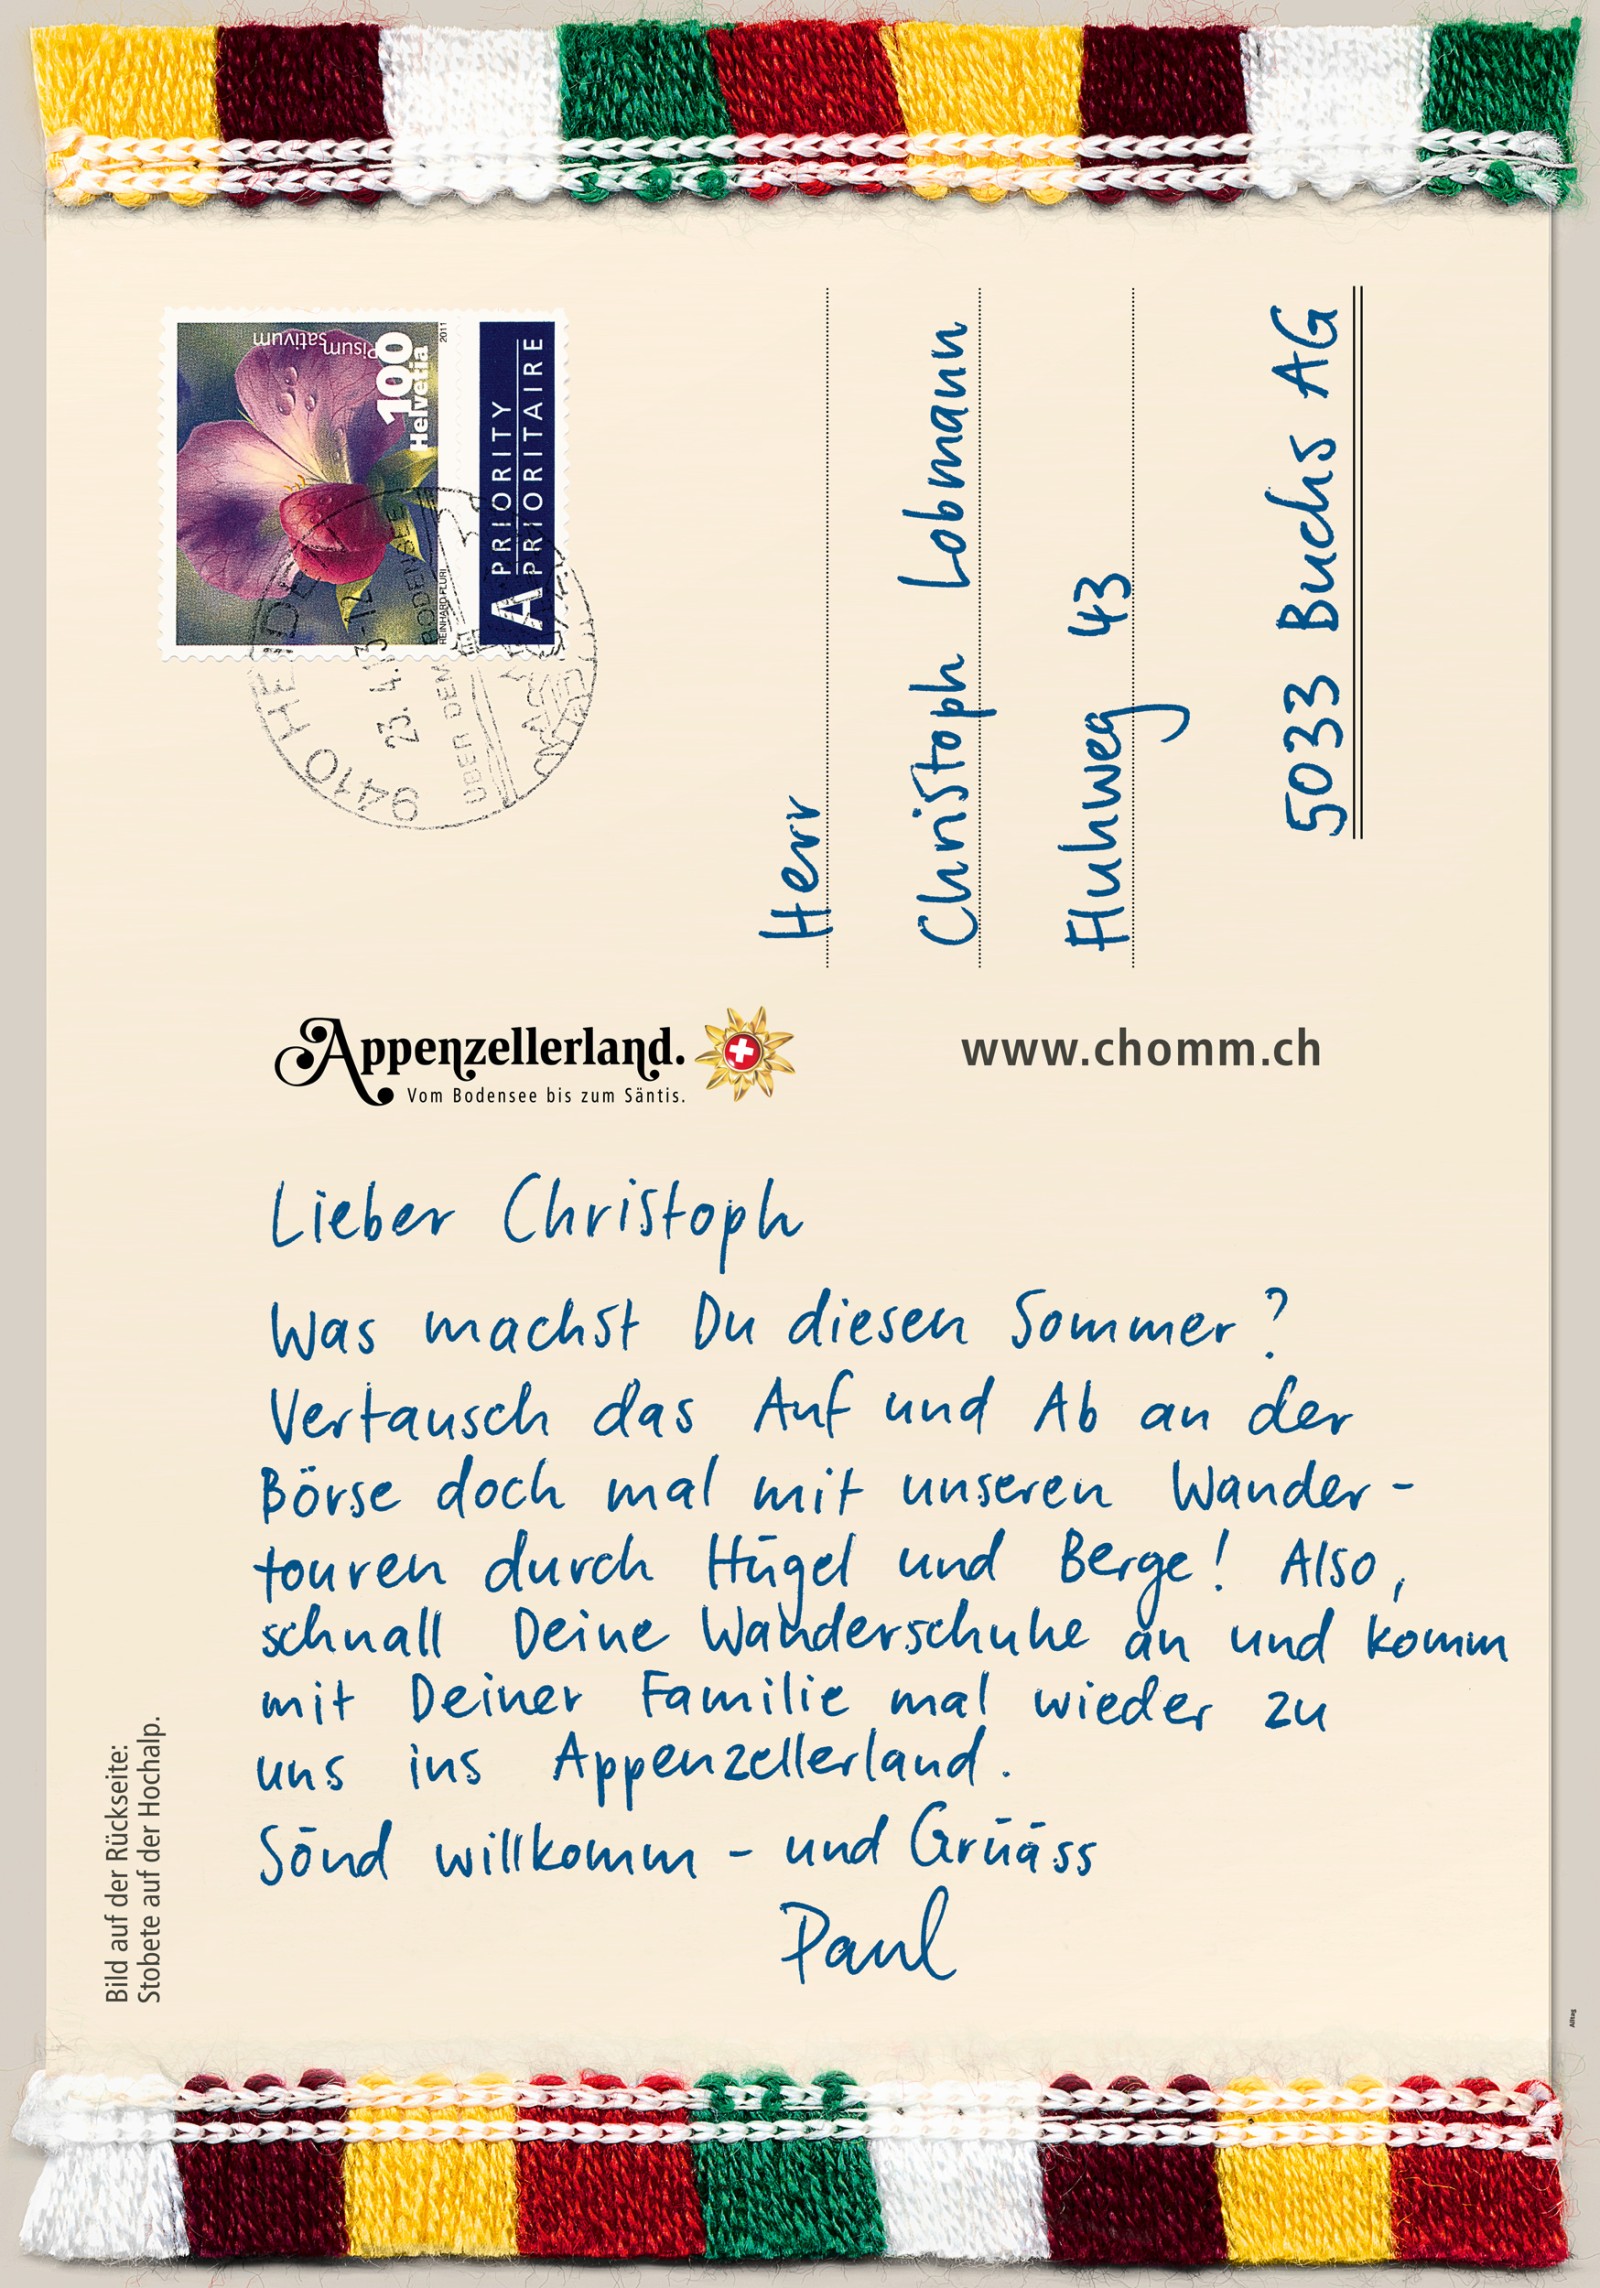 Pisum
sativum
100
Helvetia
2011
REINHARD FLURI
A PRIORITY
PRIORITAIRE
9410 HEIDEN
23.4.13-12
BODENSEE
ÜBER DEM
Herr
Christoph Lobmann
Fluhweg 43
5033 Buchs AG
Appenzellerland.
Vom Bodensee bis zum Säntis.
www.chomm.ch
Lieber Christoph
Was machst Du diesen Sommer?
Vertausch das Auf und Ab an der
Börse doch mal mit unseren Wander-
touren durch Hügel und Berge! Also,
schnall Deine Wanderschuhe an und komm
mit Deiner Familie mal wieder zu
uns ins Appenzellerland.
Sönd willkomm - und Grüäss
Paul
Bild auf der Rückseite:
Stobete auf der Hochalp.
Alltag